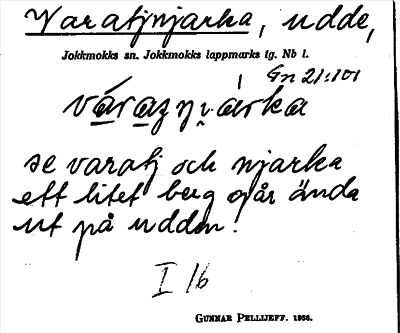 Varatjnjarka, udde,
Jokkmokks sn. Jokkmokks lappmarks tg. Nb l.
Gn 21:101
se varatj och njarka
ett litet berg går ända
ut på udden.
I 16
GUNNAR PELLIJEFF. 1936.